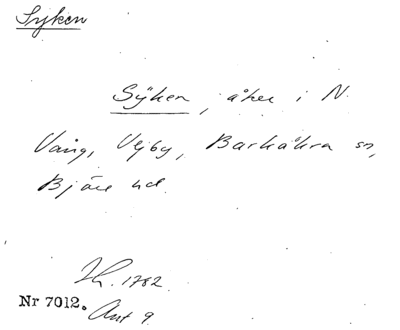 Syken
Sÿken, åker i N.
Vång, Vejby, Barkåkra sn,
Bjäre hd.
1782.
Nr 7012.
Ant 9